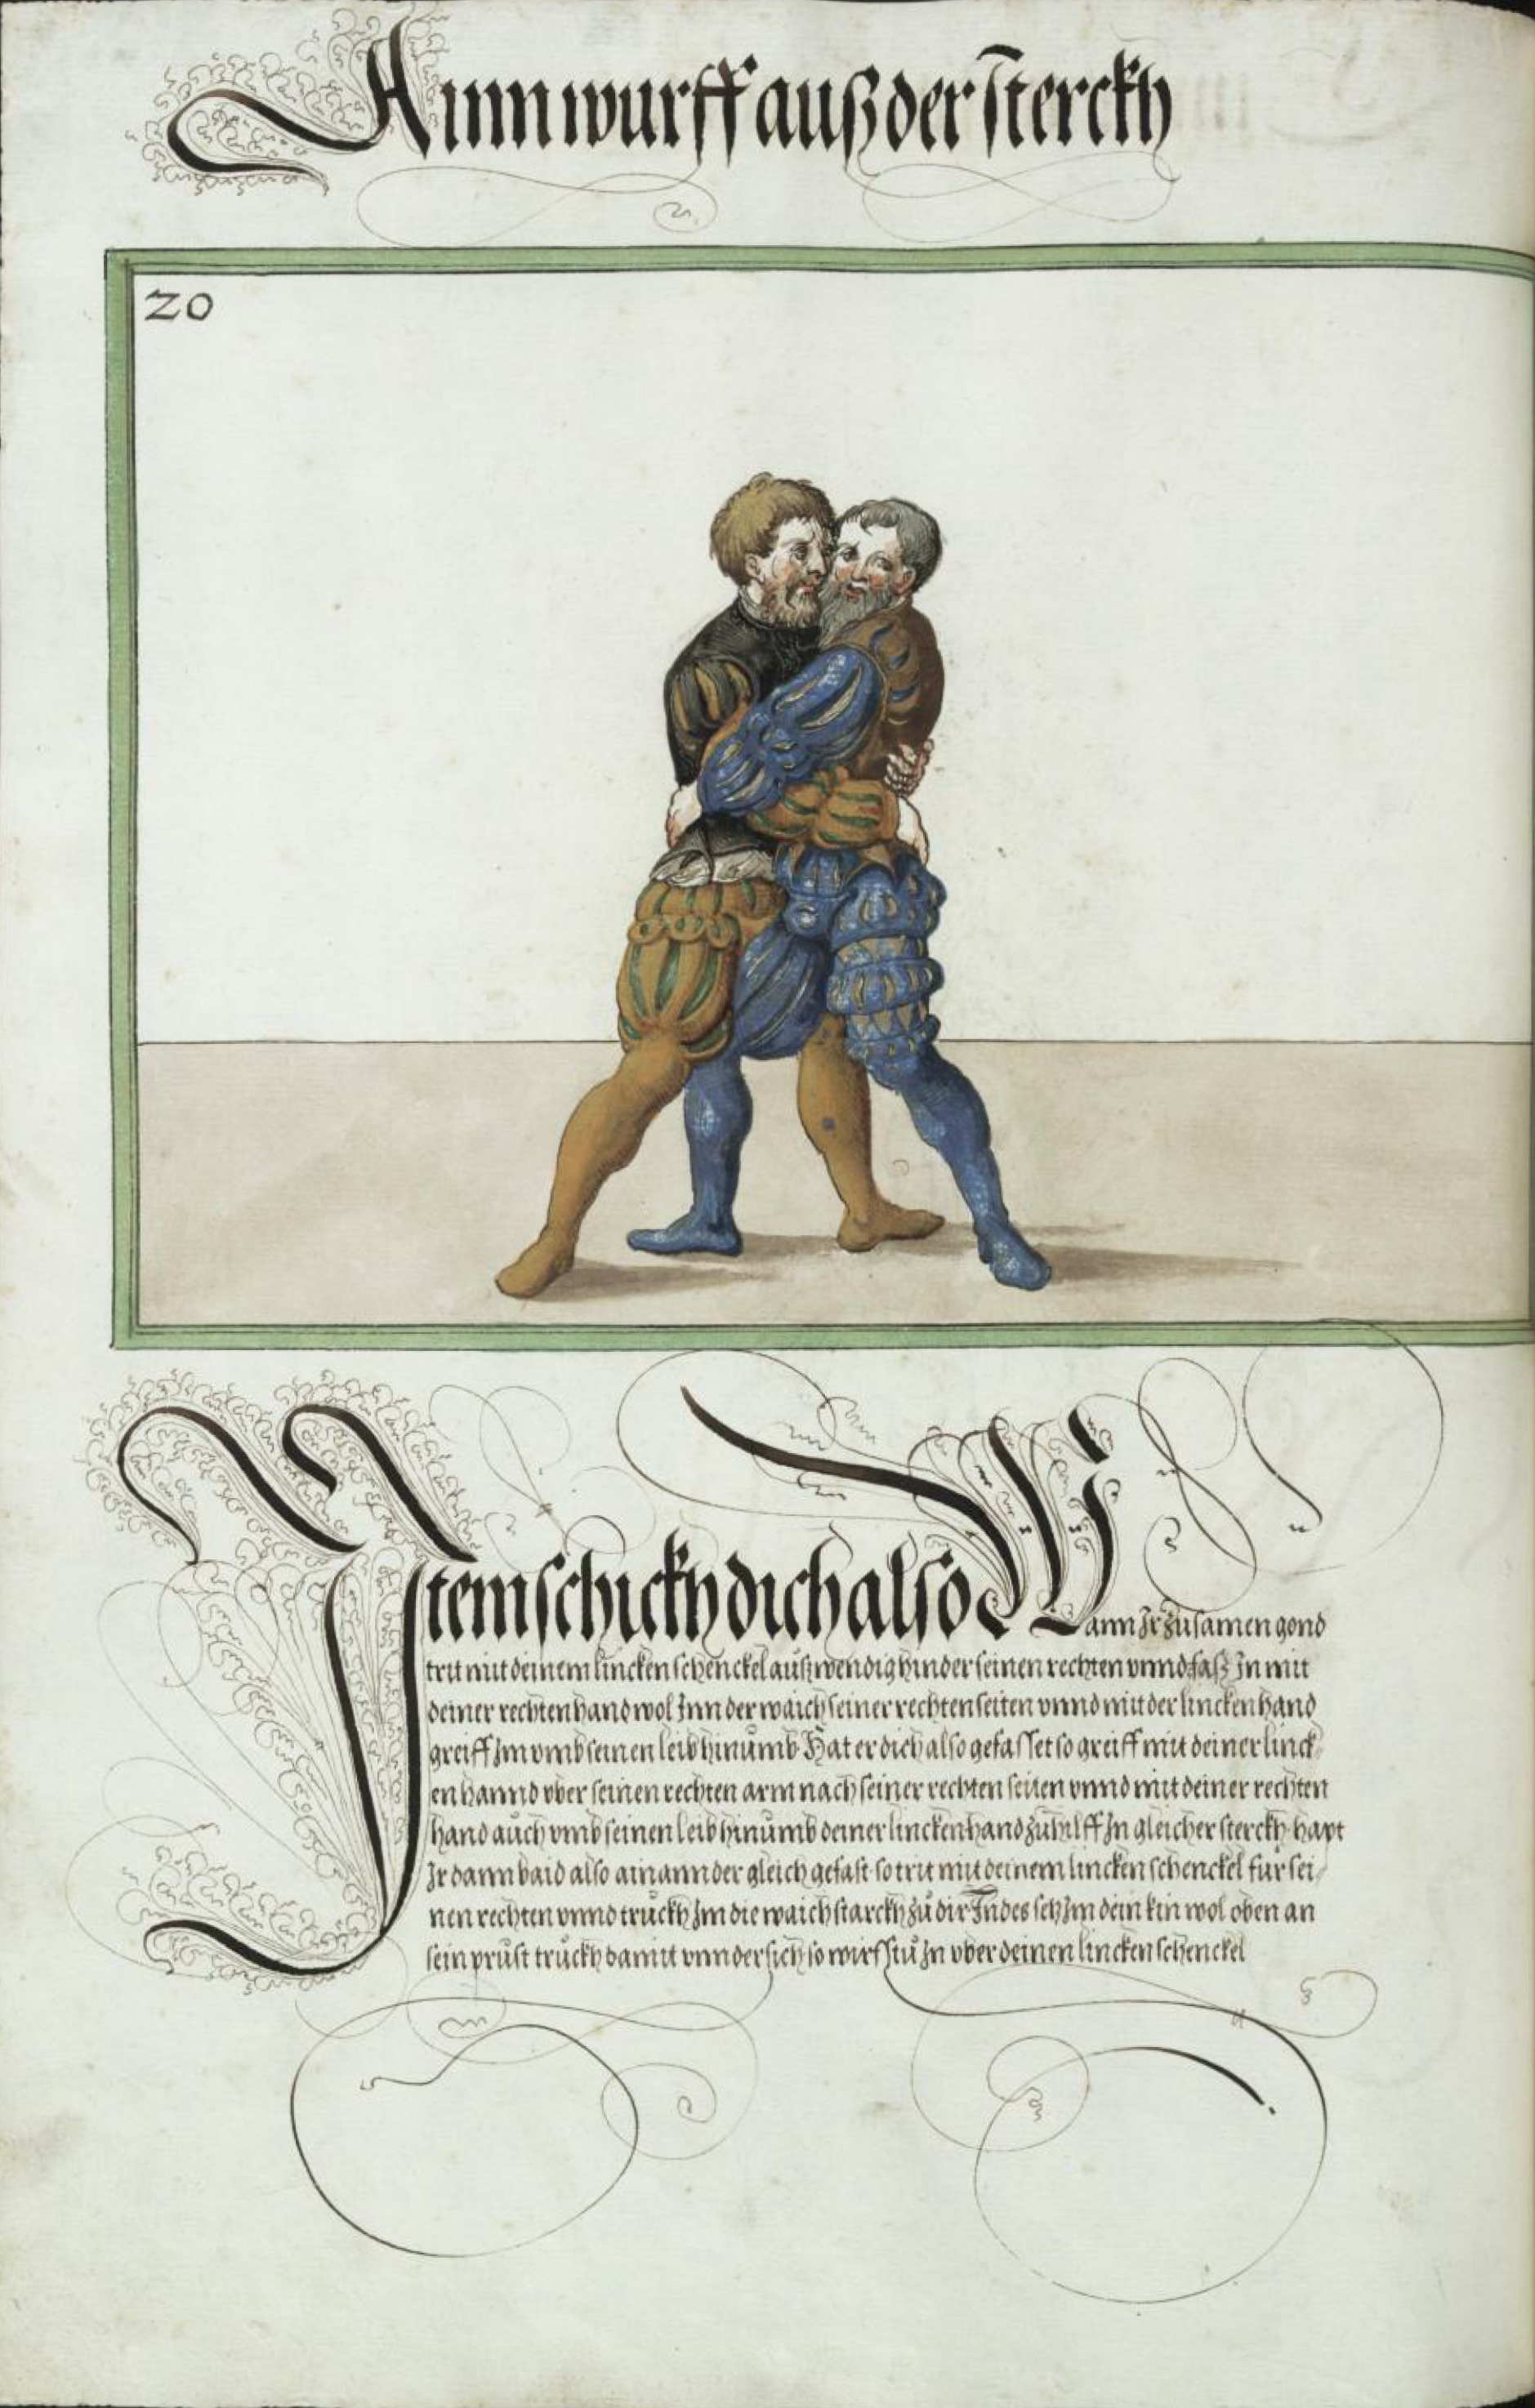 Ainn wurff auß der sterckh
20
Item schickh dich also Wann Ir zusamen gond
trit mit deinem lincken schenckel außwendig hinder seinen rechten vnnd faß In mit
deiner rechten hand wol Inn der waich seiner rechten seiten vnnd mit der lincken hand
greiff Im vmb seinen leib hinůmb Hat er dich also gefasset so greiff mit deiner linck-
en hannd vber seinen rechten arm nach seiner rechten seiten vnnd mit deiner rechten
hand aůch vmb seinen leib hinůmb deiner lincken hand zůhilff In gleicher sterckh hapt
Ir dann baid also ainannder gleich gefast so trit mit deinem lincken schenckel fůr sei-
nen rechten vnnd trůckh Im die waich starckh zů dir Indes setz Im dein kin wol oben an
sein průst trůckh damit vnndersich so wirfstů In vber deinen lincken schenckel